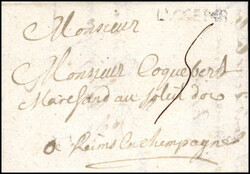 Monsieur
Monsieur Coquebert
Marchand au soleil dor
a Reims En Champagne
5